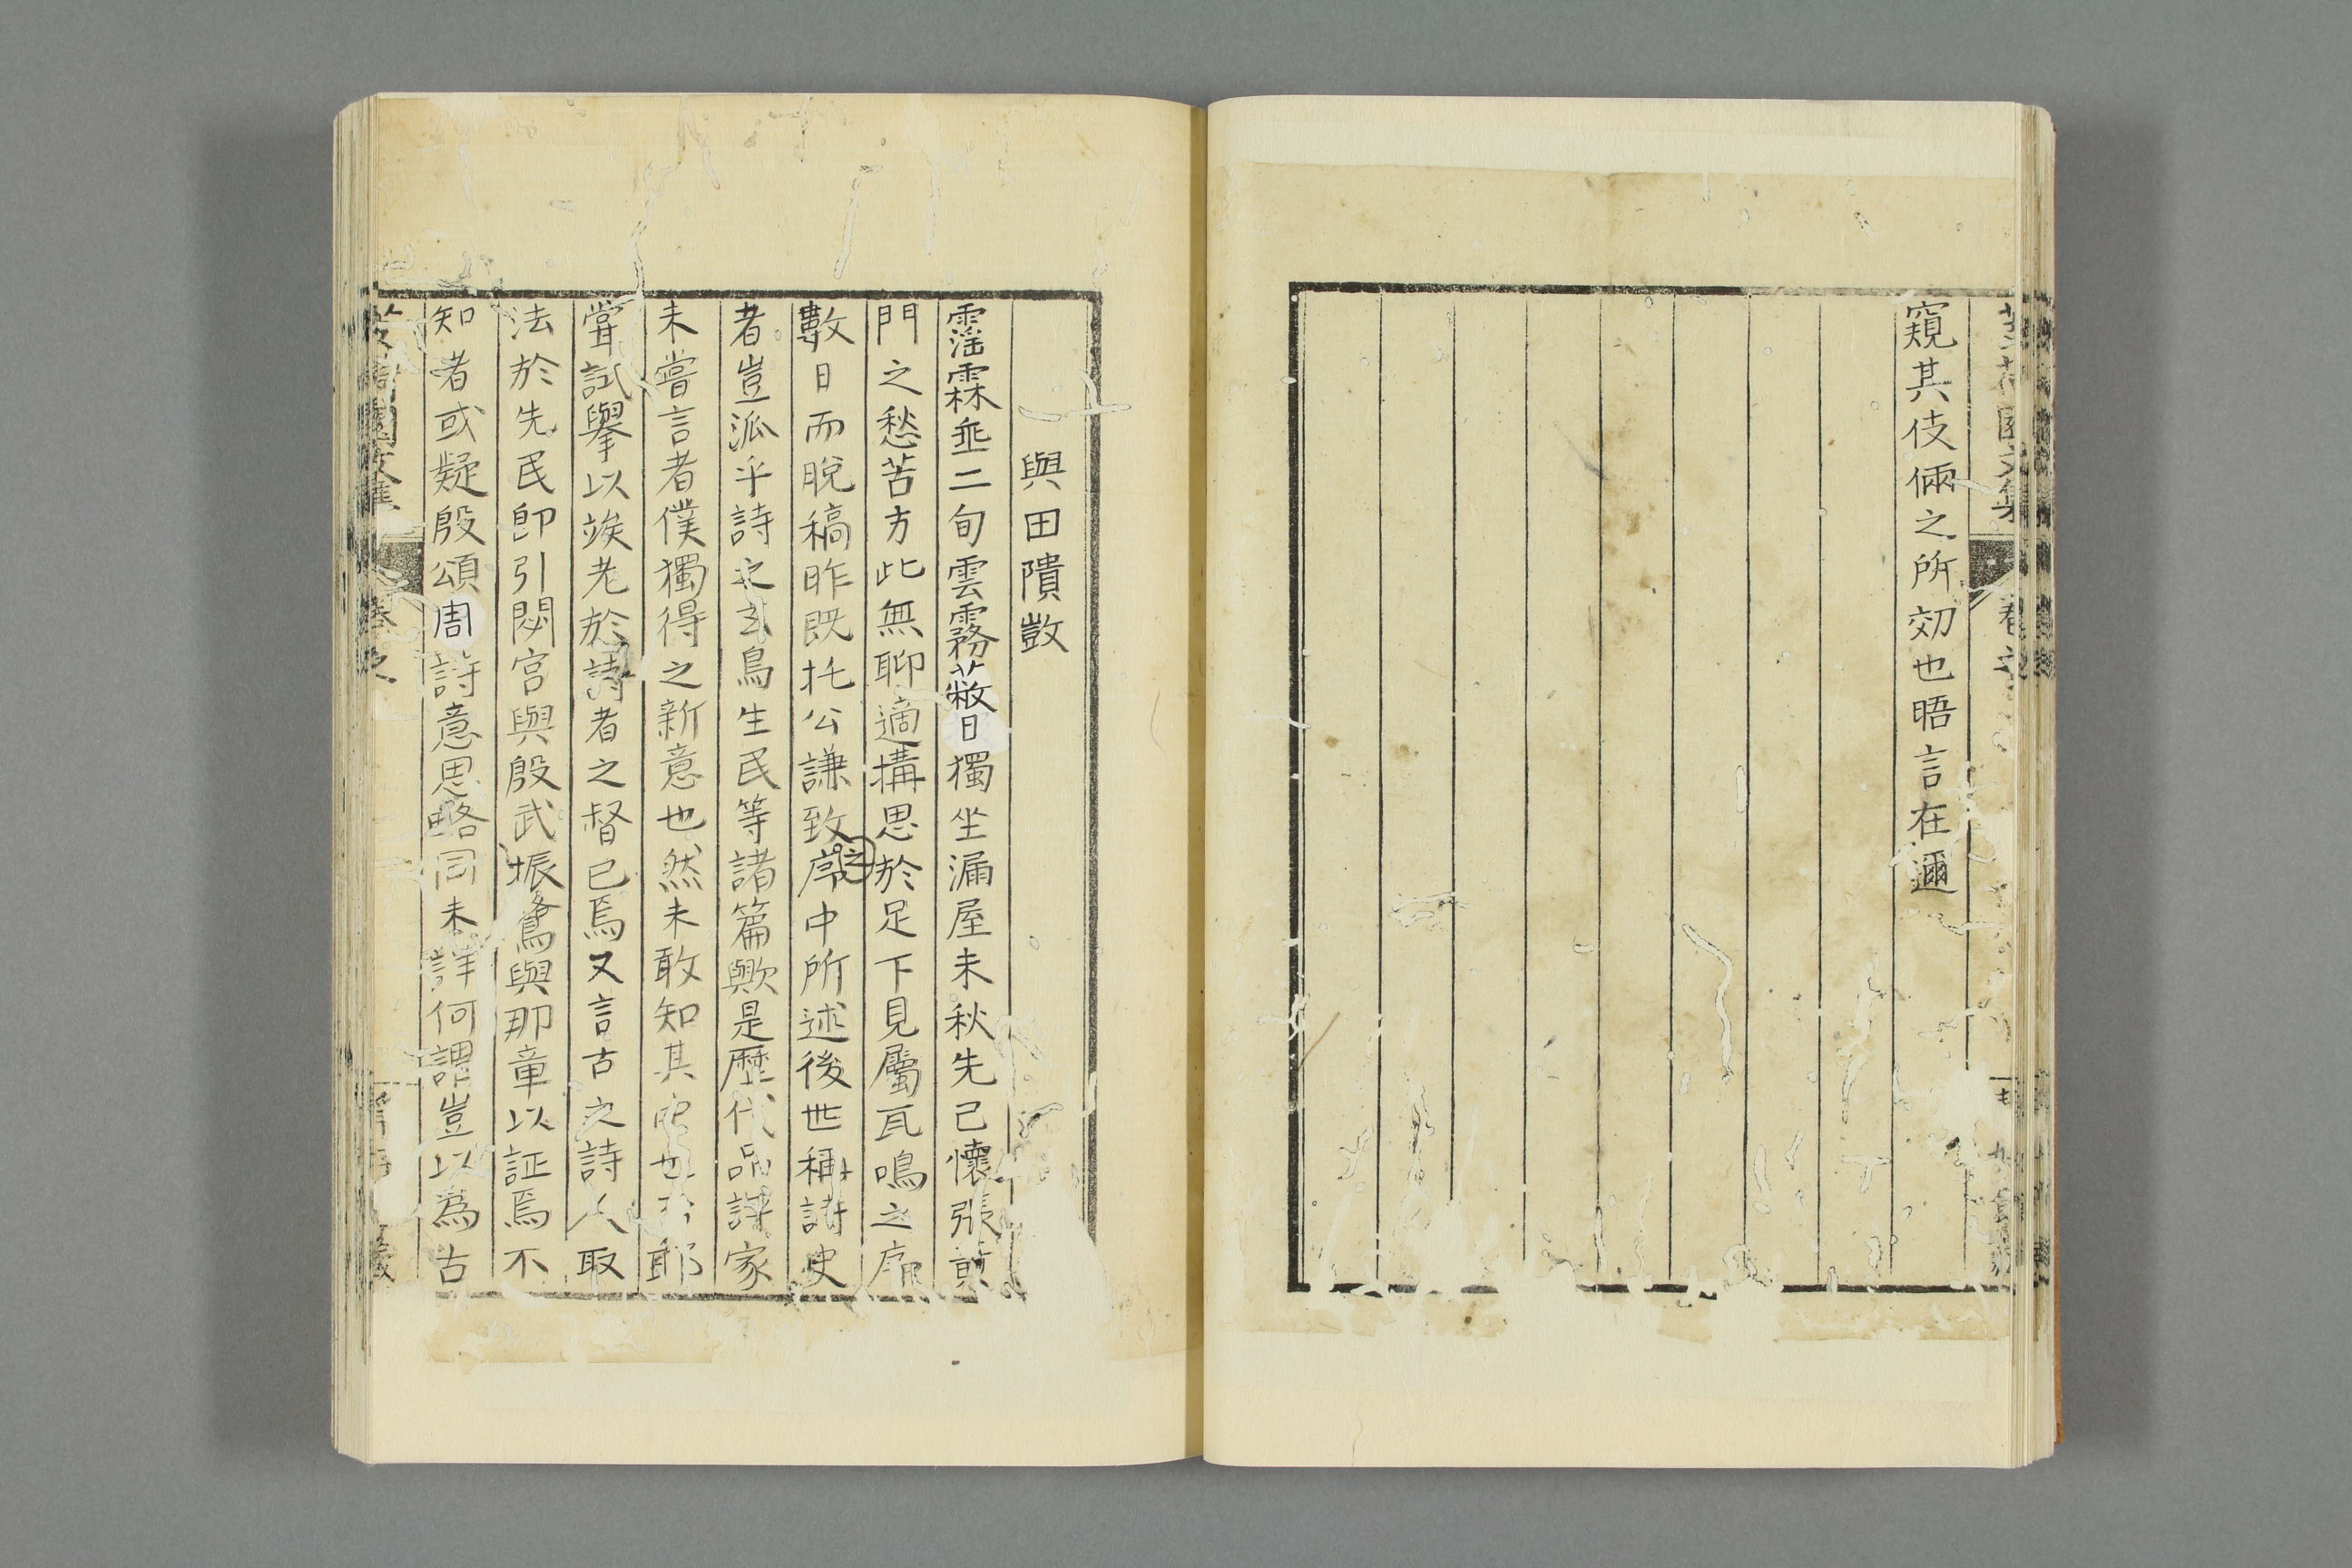 窺其伎倆之所効也晤言在邇
與田隤敳
霪霖垂二旬雲霧蔽日獨坐漏屋未秋先已懷張
門之愁苦方此無聊適搆思於足下見屬瓦鳴之序
數日而脫稿昨既托公謙致之序中所述後世稱詩史
者豈派乎詩之玄鳥生民等諸篇歟是歷代品評家
未嘗言者僕獨得之新意也然未敢知其 也 耶
嘗試舉以竢老於詩者之督已焉又言古之詩人取
法於先民卽引閟宮與殷武振鷺與那章以証焉不
知者或疑殷頌周詩意思略同未詳何謂豈以為古